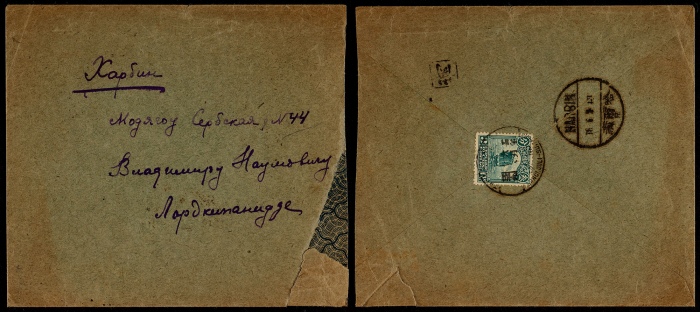 Харбин
Модягоу Сербская № 44
Владимиру Наумовичу
Лордкипанидзе
HARBIN